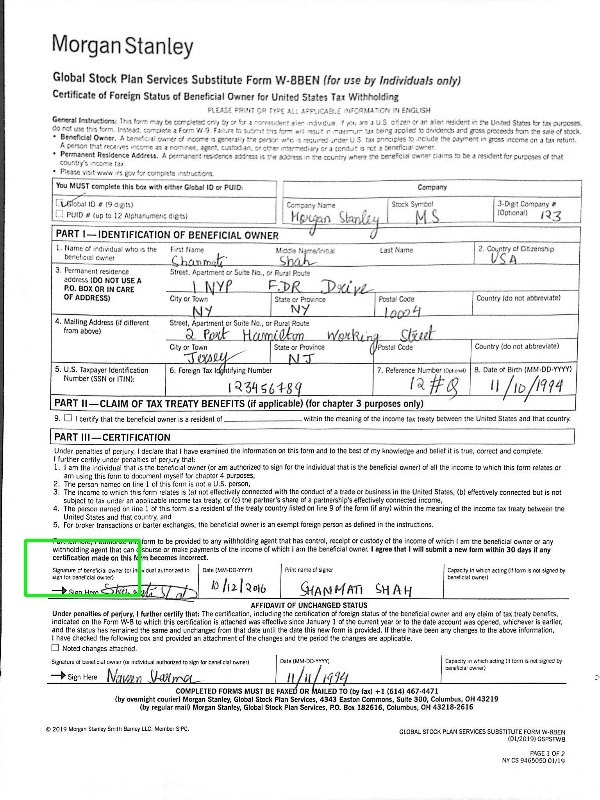 Morgan Stanley
Global Stock Plan Services Substitute Form W-8BEN (for use by Individuals only)
Certificate of Foreign Status of Beneficial Owner for United States Tax Withholding
PLEASE PRINT OR TYPE ALL APPLICABLE INFORMATION IN ENGLISH
General Instructions: This form may be completed only by or for a nonresident alien individual. If you are a U.S. citizen or an alien resident in the United States for tax purposes,
do not use this form. Instead, complete a Form W-9. Failure to submit this form will result in maximum tax being applied to dividends and gross proceeds from the sale of stock.
• Beneficial Owner. A beneficial owner of income is generally the person who is required under U.S. tax principles to include the payment in gross income on a tax return.
A person who receives income as a nominee, agent, custodian, or other intermediary or a conduit is not a beneficial owner.
• Permanent Residence Address. A permanent residence address is the address in the country where the beneficial owner claims to be a resident for purposes of that
country's income tax.
• Please visit www.irs.gov for complete instructions.
You MUST complete this box with either Global ID or PUID:
Company
Global ID # (9 digits)
PUID # (up to 12 Alphanumeric digits)
Company Name Morgan Stanley
Stock Symbol MS
3-Digit Company # (Optional) 123
PART I—IDENTIFICATION OF BENEFICIAL OWNER
1. Name of individual who is the beneficial owner
First Name Shanmati
Middle Name/Initial Shah
Last Name
2. Country of Citizenship USA
3. Permanent residence address (DO NOT USE A P.O. BOX OR IN CARE OF ADDRESS)
Street, Apartment or Suite No., or Rural Route
1 NYP FDR Drive
City or Town NY
State or Province NY
Postal Code 10004
Country (do not abbreviate)
4. Mailing Address (if different from above)
Street, Apartment or Suite No., or Rural Route
2 Port Hamilton Working Street
City or Town Jersey
State or Province NJ
Postal Code
Country (do not abbreviate)
5. U.S. Taxpayer Identification Number (SSN or ITIN):
6. Foreign Tax Identifying Number 123456789
7. Reference Number (Optional) 12#Q
8. Date of Birth (MM-DD-YYYY) 11/10/1994
PART II—CLAIM OF TAX TREATY BENEFITS (if applicable) (for chapter 3 purposes only)
9. I certify that the beneficial owner is a resident of within the meaning of the income tax treaty between the United States and that country.
PART III—CERTIFICATION
Under penalties of perjury, I declare that I have examined the information on this form and to the best of my knowledge and belief it is true, correct and complete.
I further certify under penalties of perjury that:
1. I am the individual that is the beneficial owner (or am authorized to sign for the individual that is the beneficial owner) of all the income to which this form relates or
am using this form to document myself for chapter 4 purposes,
2. The person named on line 1 of this form is not a U.S. person,
3. The income to which this form relates is (a) not effectively connected with the conduct of a trade or business in the United States, (b) effectively connected but is not
subject to tax under an applicable income tax treaty, or (c) the partner's share of a partnership's effectively connected income,
4. The person named on line 1 of this form is a resident of the treaty country listed on line 9 of the form (if any) within the meaning of the income tax treaty between the
United States and that country, and
5. For broker transactions or barter exchanges, the beneficial owner is an exempt foreign person as defined in the instructions.
Furthermore, I authorize this form to be provided to any withholding agent that has control, receipt or custody of the income of which I am the beneficial owner or any
withholding agent that can disburse or make payments of the income of which I am the beneficial owner. I agree that I will submit a new form within 30 days if any
certification made on this form becomes incorrect.
Signature of beneficial owner (or individual authorized to sign for beneficial owner)
Sign Here
Date (MM-DD-YYYY) 10/12/2016
Print name of signer SHANMATI SHAH
Capacity in which acting (if form is not signed by beneficial owner)
AFFIDAVIT OF UNCHANGED STATUS
Under penalties of perjury, I further certify that: The certification, including the certification of foreign status of the beneficial owner and any claim of tax treaty benefits,
indicated on the Form W-8 to which this certification is attached was effective since January 1 of the current year or to the date account was opened, whichever is earlier,
and the status has remained the same and unchanged from that date until the date this new form is provided. If there have been any changes to the above information,
I have checked the following box and provided an attachment of the changes and the period the changes are applicable.
Noted changes attached.
Signature of beneficial owner (or individual authorized to sign for beneficial owner)
Sign Here Naveen Sharma
Date (MM-DD-YYYY) 11/11/1994
Capacity in which acting (if form is not signed by beneficial owner)
COMPLETED FORMS MUST BE FAXED OR MAILED TO (by fax) +1 (614) 467-4471
(by overnight courier) Morgan Stanley, Global Stock Plan Services, 4343 Easton Commons, Suite 300, Columbus, OH 43219
(by regular mail) Morgan Stanley, Global Stock Plan Services, P.O. Box 182616, Columbus, OH 43218-2616
© 2019 Morgan Stanley Smith Barney LLC. Member SIPC.
GLOBAL STOCK PLAN SERVICES SUBSTITUTE FORM W-8BEN
(01/2019) GSPSFWB
PAGE 1 OF 2
NY CS 9465050 01/19